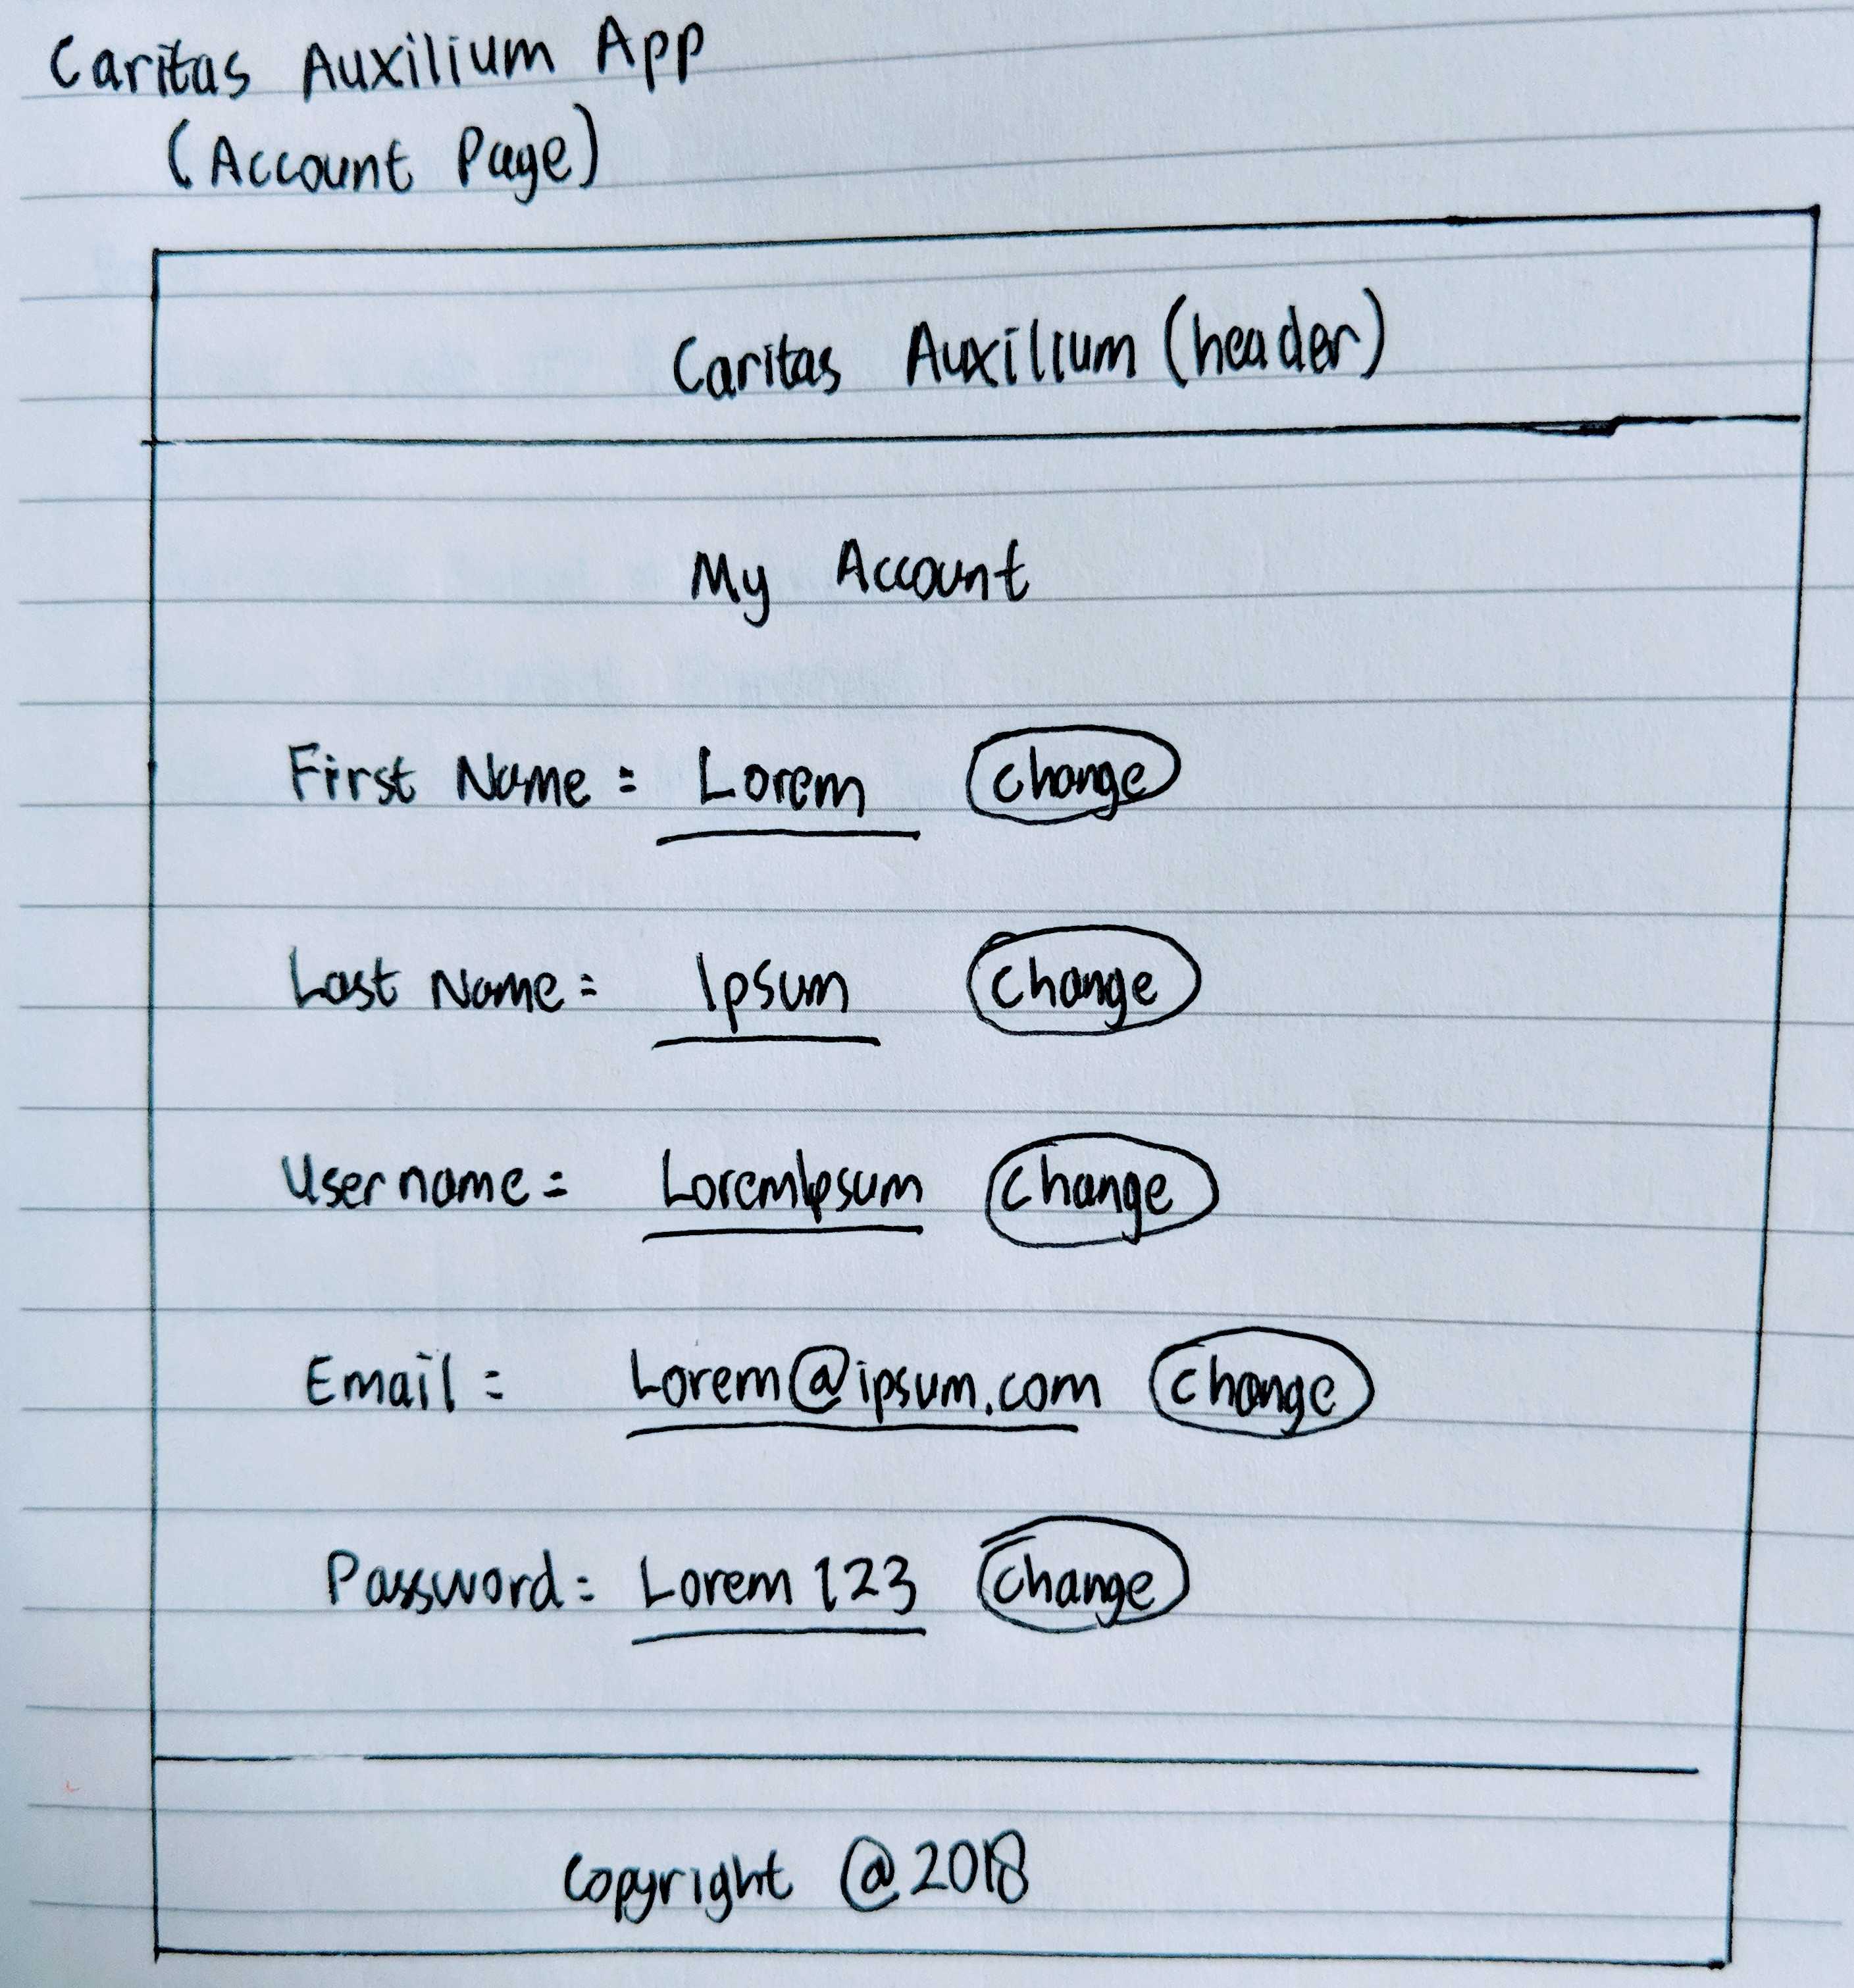 Caritas Auxilium App
(Account Page)
Caritas Auxilium (header)
My Account
First Name = Lorem change
Last Name = Ipsum change
Username = LoremIpsum change
Email = Lorem@ipsum.com change
Password = Lorem 123 change
Copyright @ 2018